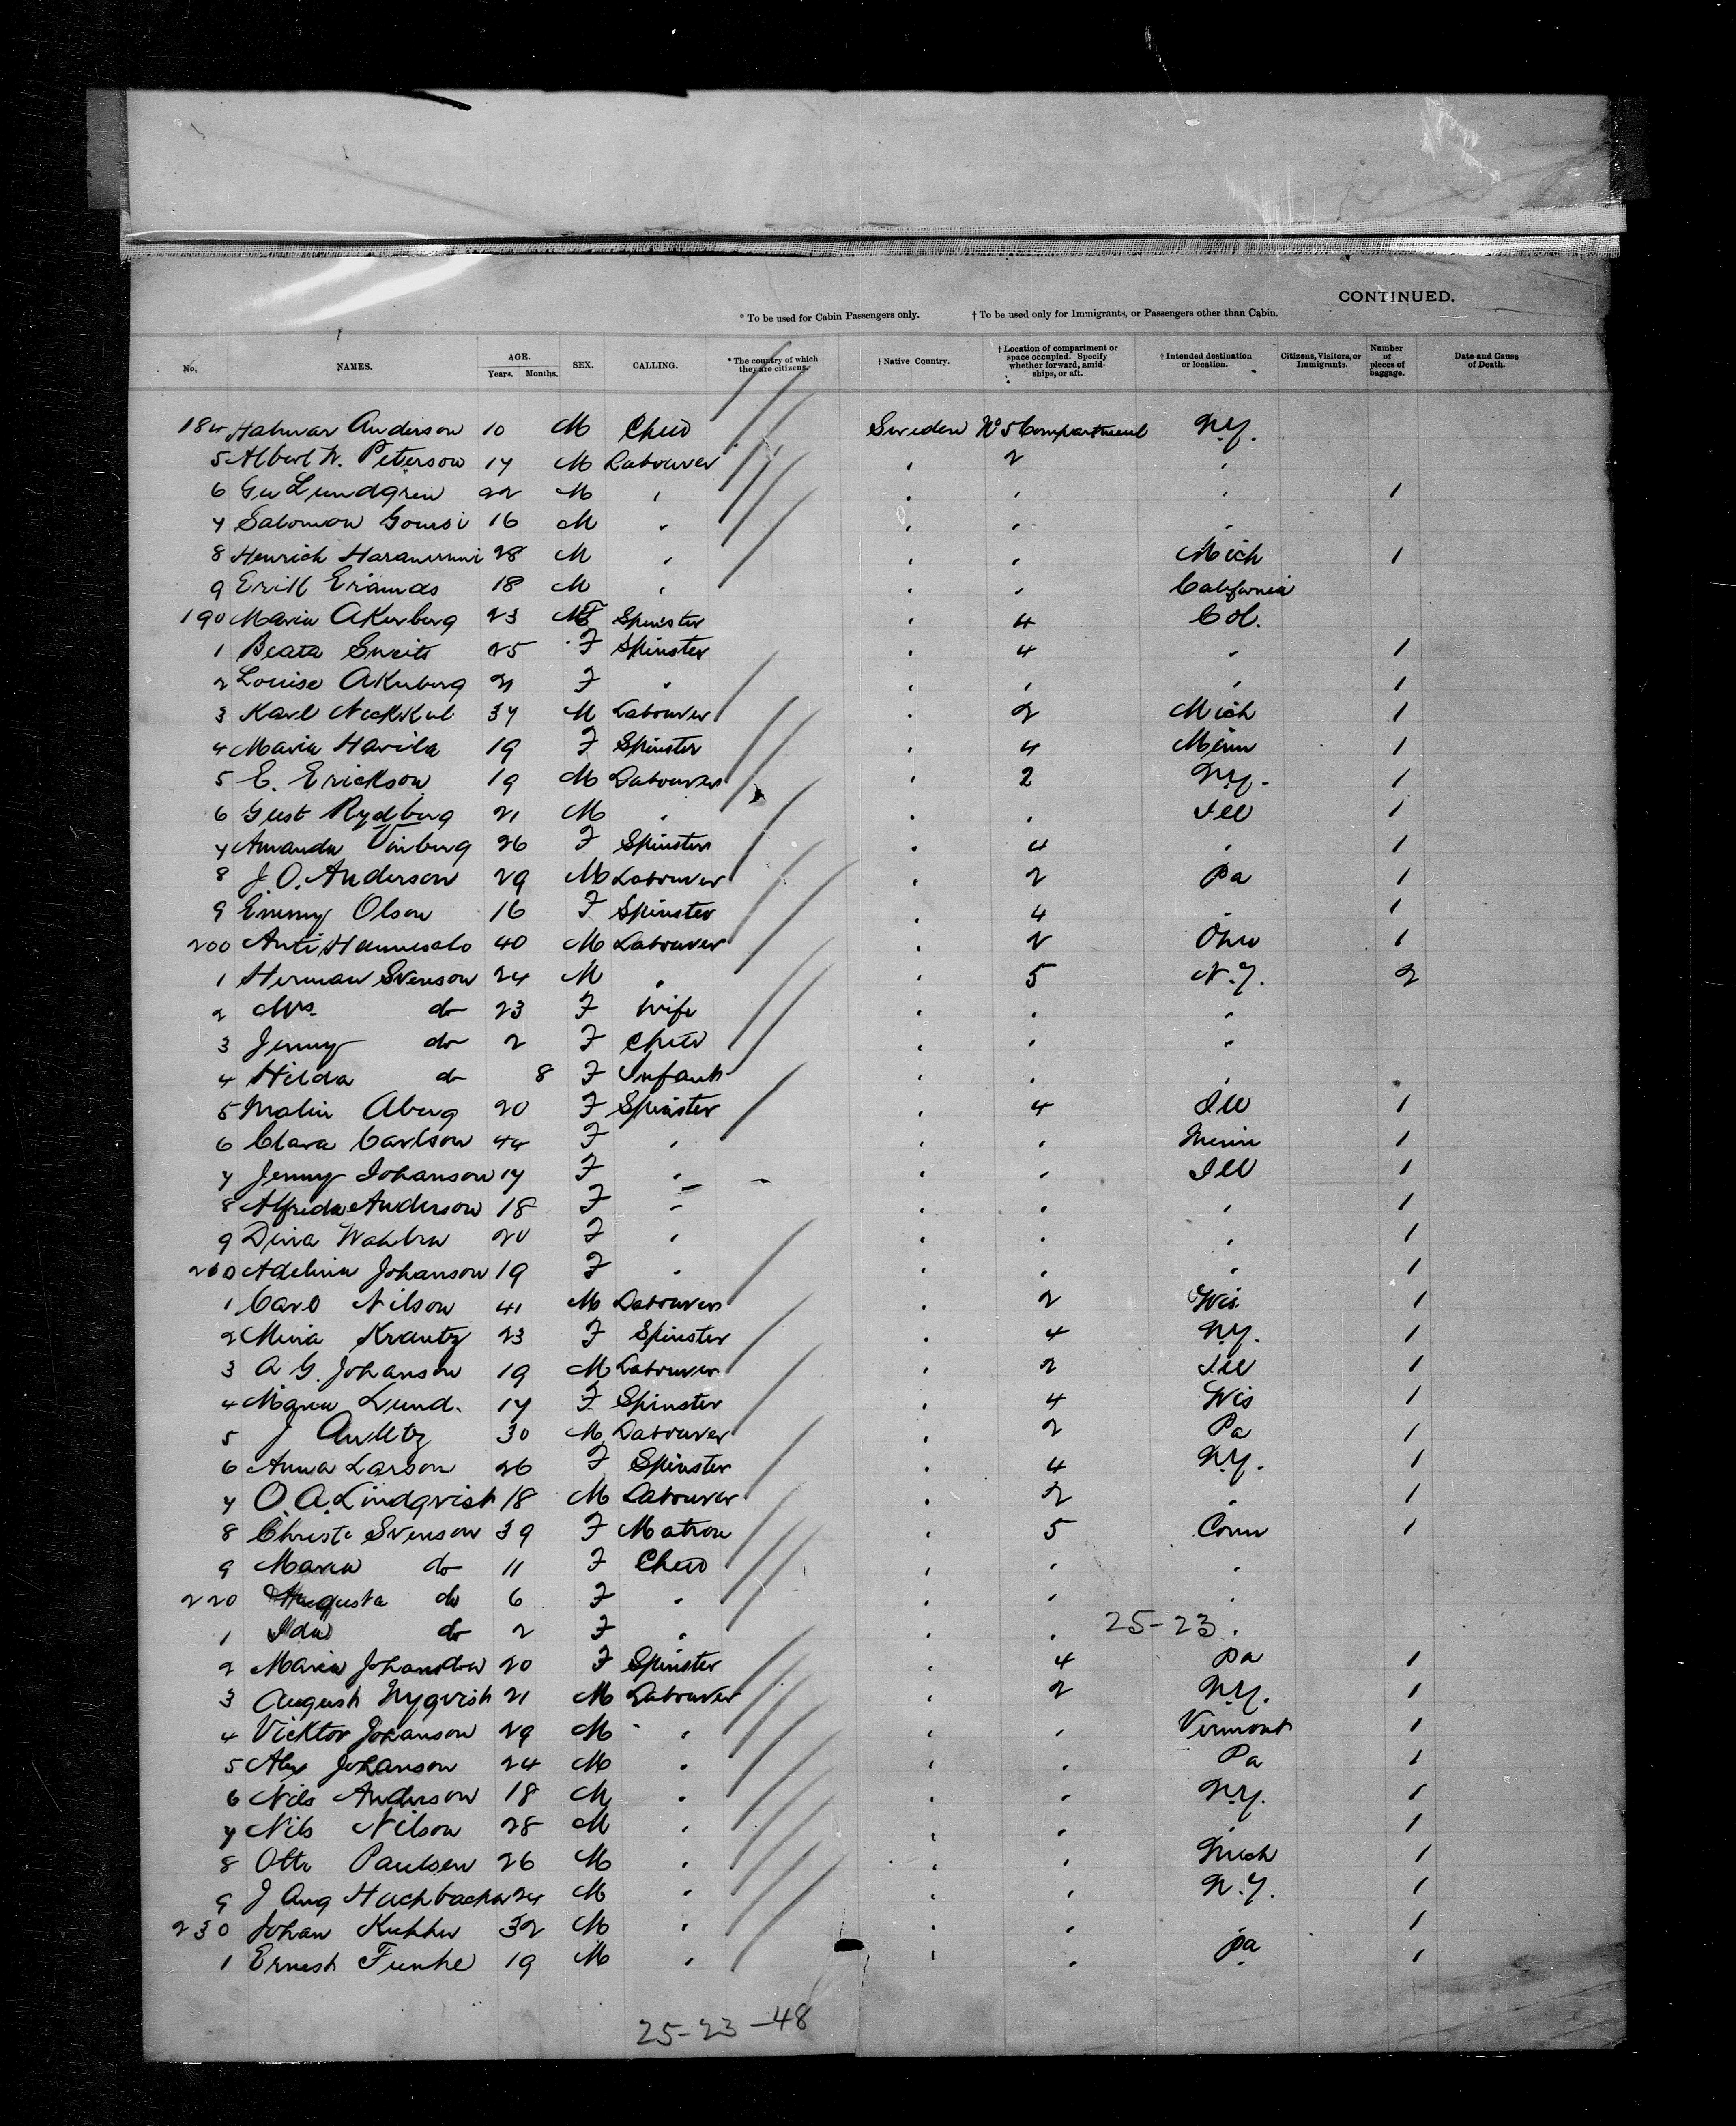 CONTINUED.
* To be used for Cabin Passengers only. † To be used only for Immigrants, or Passengers other than Cabin.
No. NAMES. AGE. Years. Months. SEX. CALLING. * The country of which they are citizens. † Native Country. † Location of compartment or space occupied. Specify whether forward, amidships, or aft. † Intended destination or location. Citizens, Visitors, or Immigrants. Number of pieces of baggage. Date and Cause of Death.
184 Anderson 10 M Child Sweden No 5 Compartment N.Y.
5 Albert W. Peterson 17 M Labourer " 2 "
6 Lundgren 22 M " " " " 1
7 Salomon 16 M " " " "
8 Henrich 28 M " " " Mich 1
9 Erik 18 M " " " California
190 Maria Akerberg 23 F Spinster " 4 Col.
1 Beata 25 F Spinster " 4 " 1
2 Louise Akerberg 21 F " " " " 1
3 Karl 37 M Labourer " 2 Mich 1
4 Maria Harila 19 F Spinster " 4 Minn 1
5 E. Erickson 19 M Labourer " 2 N.Y. 1
6 Gust Rydberg 21 M " " " Ill 1
7 Amanda Vinberg 26 F Spinster " 4 " 1
8 J. O. Anderson 29 M Labourer " 2 Pa 1
9 Emmy Olson 16 F Spinster " 4 " 1
200 Anti 40 M Labourer " 2 Ohio 1
1 Herman Svenson 24 M " " 5 N.Y. 2
2 Mrs. do 23 F Wife " " "
3 Jenny do 2 F Child " " "
4 Hilda do 8 F Infant " " "
5 Malin Aberg 20 F Spinster " 4 Ill 1
6 Clara Carlson 44 F " " " Minn 1
7 Jenny Johanson 17 F " " " Ill 1
8 Alfrida Anderson 18 F " " " " 1
9 Dina 20 F " " " " 1
210 Adelina Johanson 19 F " " " " 1
1 Carl Nilson 41 M Labourer " 2 Wis 1
2 Mina Krantz 23 F Spinster " 4 N.Y. 1
3 A G. Johanson 19 M Labourer " 2 Ill 1
4 Maria Lund. 17 F Spinster " 4 Wis 1
5 J 30 M Labourer " 2 Pa 1
6 Anna Larson 26 F Spinster " 4 N.Y. 1
7 O. A. Lindqvist 18 M Labourer " 2 " 1
8 Christi Svenson 39 F Matron " 5 Conn 1
9 Maria do 11 F Child " " "
220 Augusta do 6 F " " " "
1 Ida do 2 F " " " 25-23 "
2 Maria Johansdon 20 F Spinster " 4 Pa 1
3 August Nyqvist 21 M Labourer " 2 N.Y. 1
4 Vicktor Johanson 29 M " " " Vermont 1
5 Alex Johanson 24 M " " " Pa 1
6 Nils Anderson 18 M " " " N.Y. 1
7 Nils Nilson 28 M " " " " 1
8 Otto Paulsen 26 M " " " Mich 1
9 J Aug 24 M " " " N.Y. 1
230 Johan 32 M " " " 1
1 Ernest Funke 19 M " " " Pa 1
25-23-48